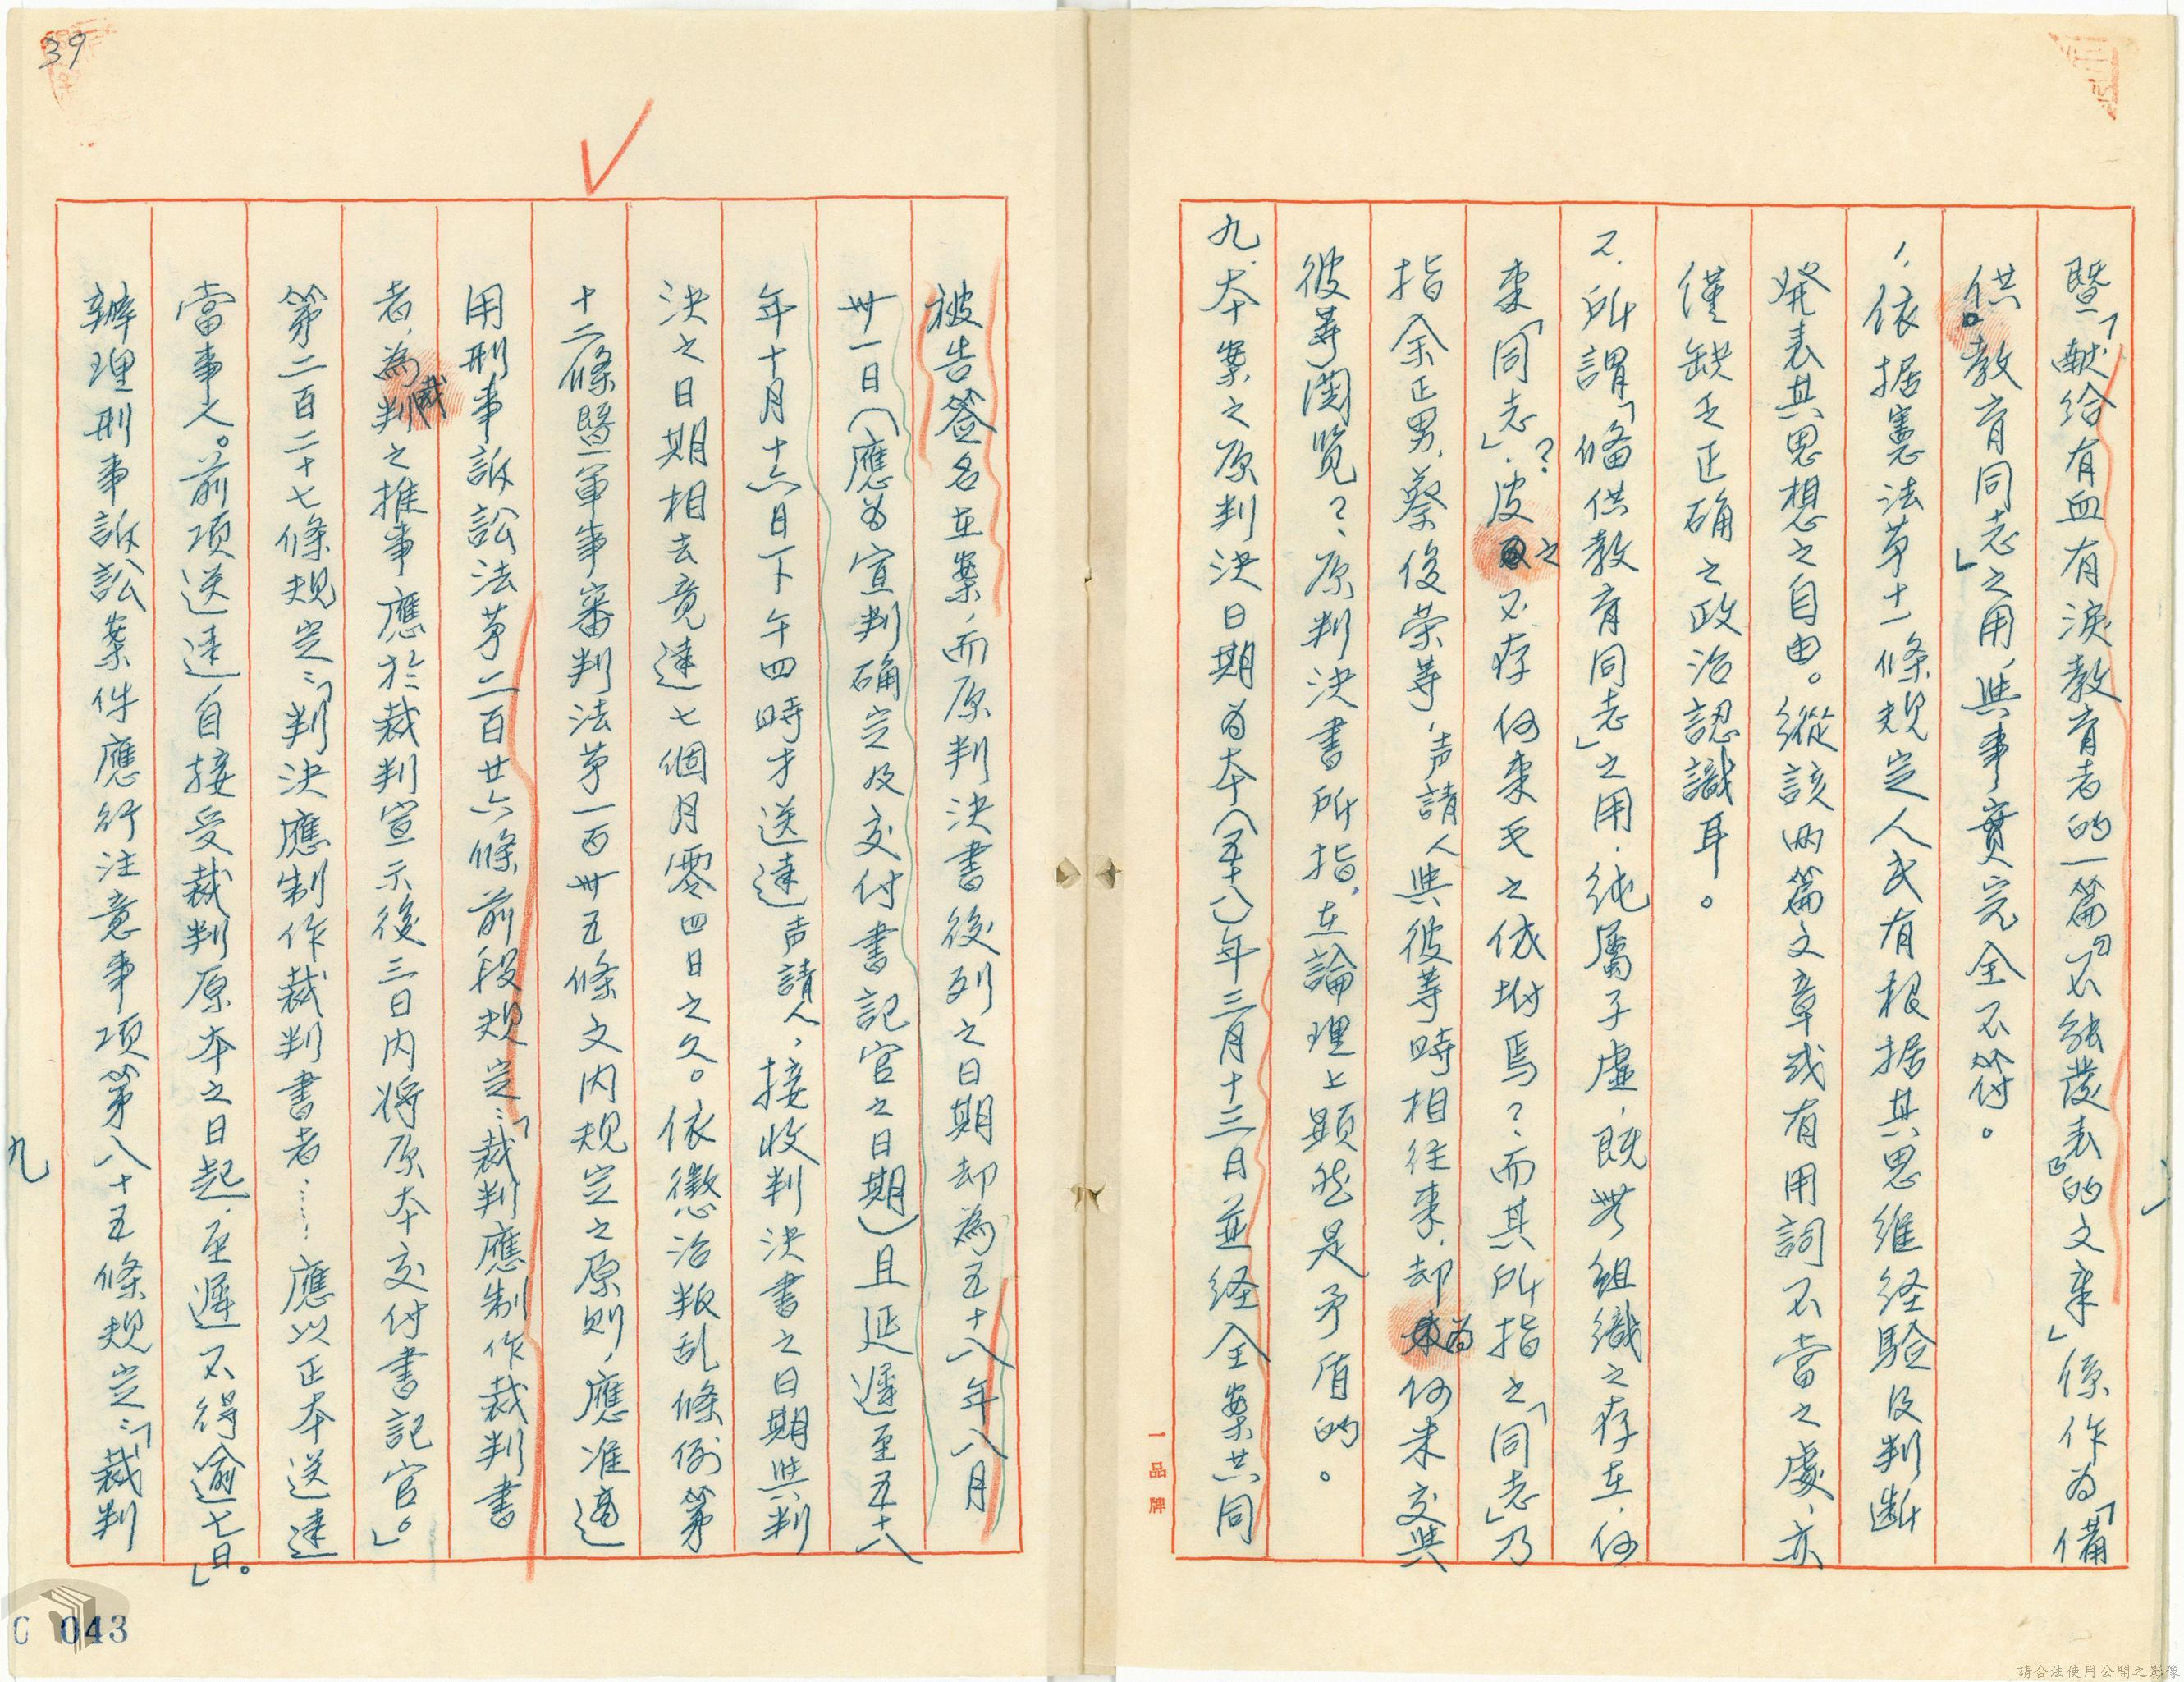 暨「献给有血有淚教育者的一篇『不能發表』的文章」係作為「備
供教育同志」之用，與事實完全不符。
1.依据憲法第十一條規定人民有根据其思維経驗及判断
発表其思想之自由。縱該兩篇文章或有用詞不當之處，亦
僅缺乏正确之政治認識耳。
2.所謂「俻供教育同志」之用，純屬子虛，既無組織之存在，何
來「同志」？皮之不存何來毛之依坿焉？而其所指之「同志」乃
指余正男，蔡俊荣等，声請人與彼等時相往來，却為何未交與
彼等閱览？原判決書所指，在論理上顕然是矛盾的。
九、本案之原判決日期為本(五十八)年三月十三月並経全案共同
一品牌
被告簽名在案，而原判決書後列之日期却為五十八年八月
卅一日(應為宣判确定及交付書記官之日期)且延遲至五十八
年十月十六日下午四時才送達声請人，接收判決書之日期與判
決之日期相去竟達七個月零四日之久。依懲治叛乱條例第
十二條暨軍事審判法第一百卅五條文内規定之原则，應准適
用刑事訴訟法第二百廿六條前段規定：「裁判應制作裁判書
者，為裁判之推事應於裁判宣示後三日内将原本交付書記官。」
第二百二十七條規定：「判決應制作裁判書者……應以正本送達
當事人。前項送達自接受裁判原本之日起，至遲不得逾七日。」
辦理刑事訴訟案件應行注意事項第八十五條規定：「裁判
九
39
C 043
請合法使用公開之影像